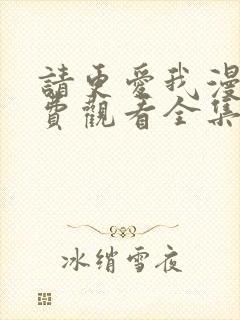 請更愛我漫
費觀看全集
冰綃雪夜